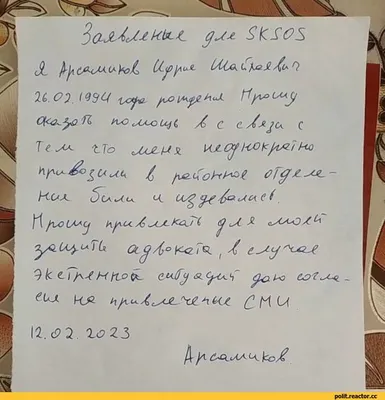 Заявление для SKSOS
Я Арсамиков Идрис Шайхаевич
26.02.1994 года рождения Прошу
оказать помощь в с связи с
тем что меня неоднократно
привозили в районное отделе-
ние били и издевались.
Прошу привлекать для моей
защиты адвоката, в случае
экстренной ситуаций даю согла-
сие на привлеченые СМИ
12.02.2023
Арсамиков
polit.reactor.cc